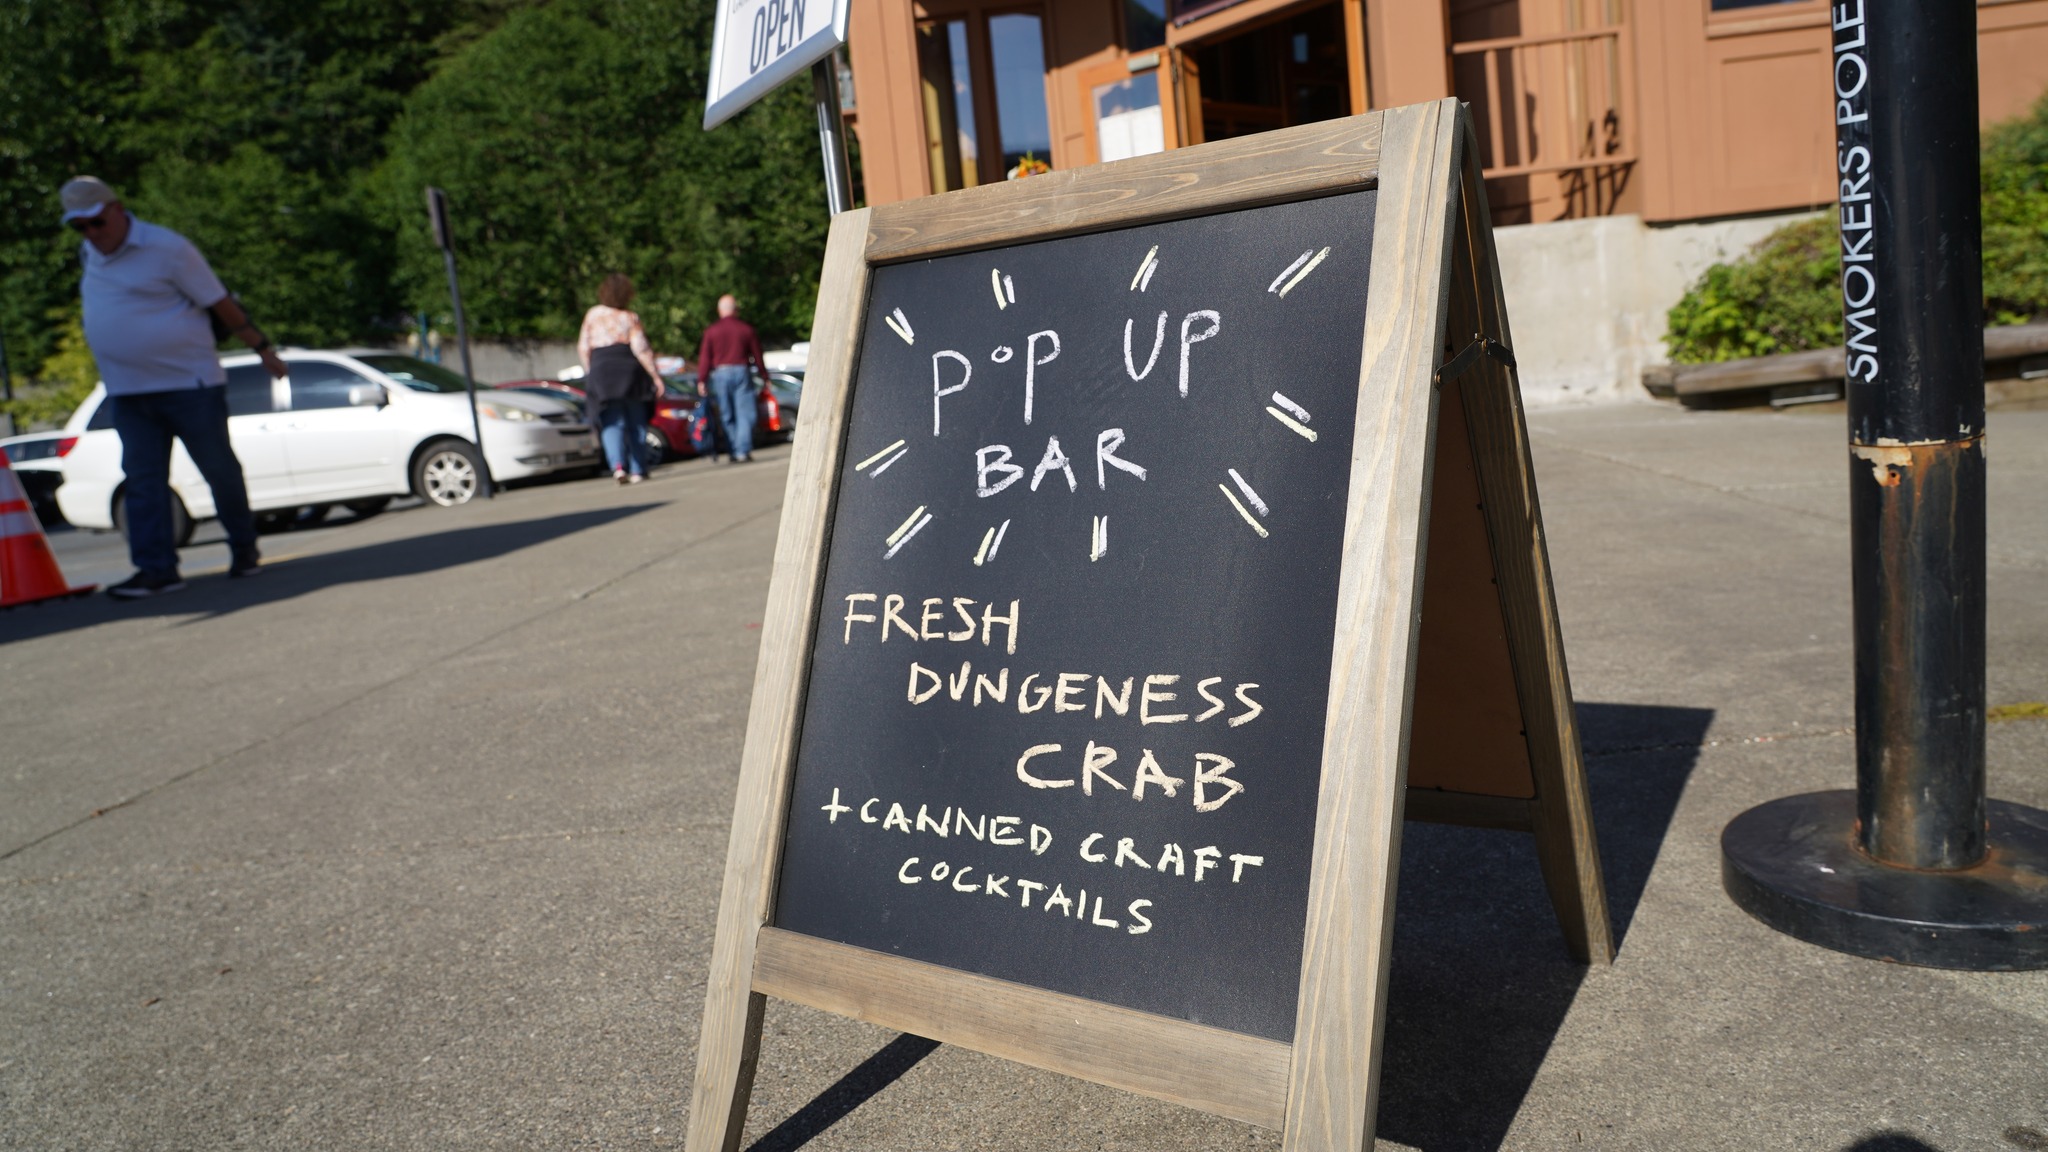 OPEN
POP UP
BAR
FRESH
DUNGENESS
CRAB
+CANNED CRAFT
COCKTAILS
SMOKERS' POLE